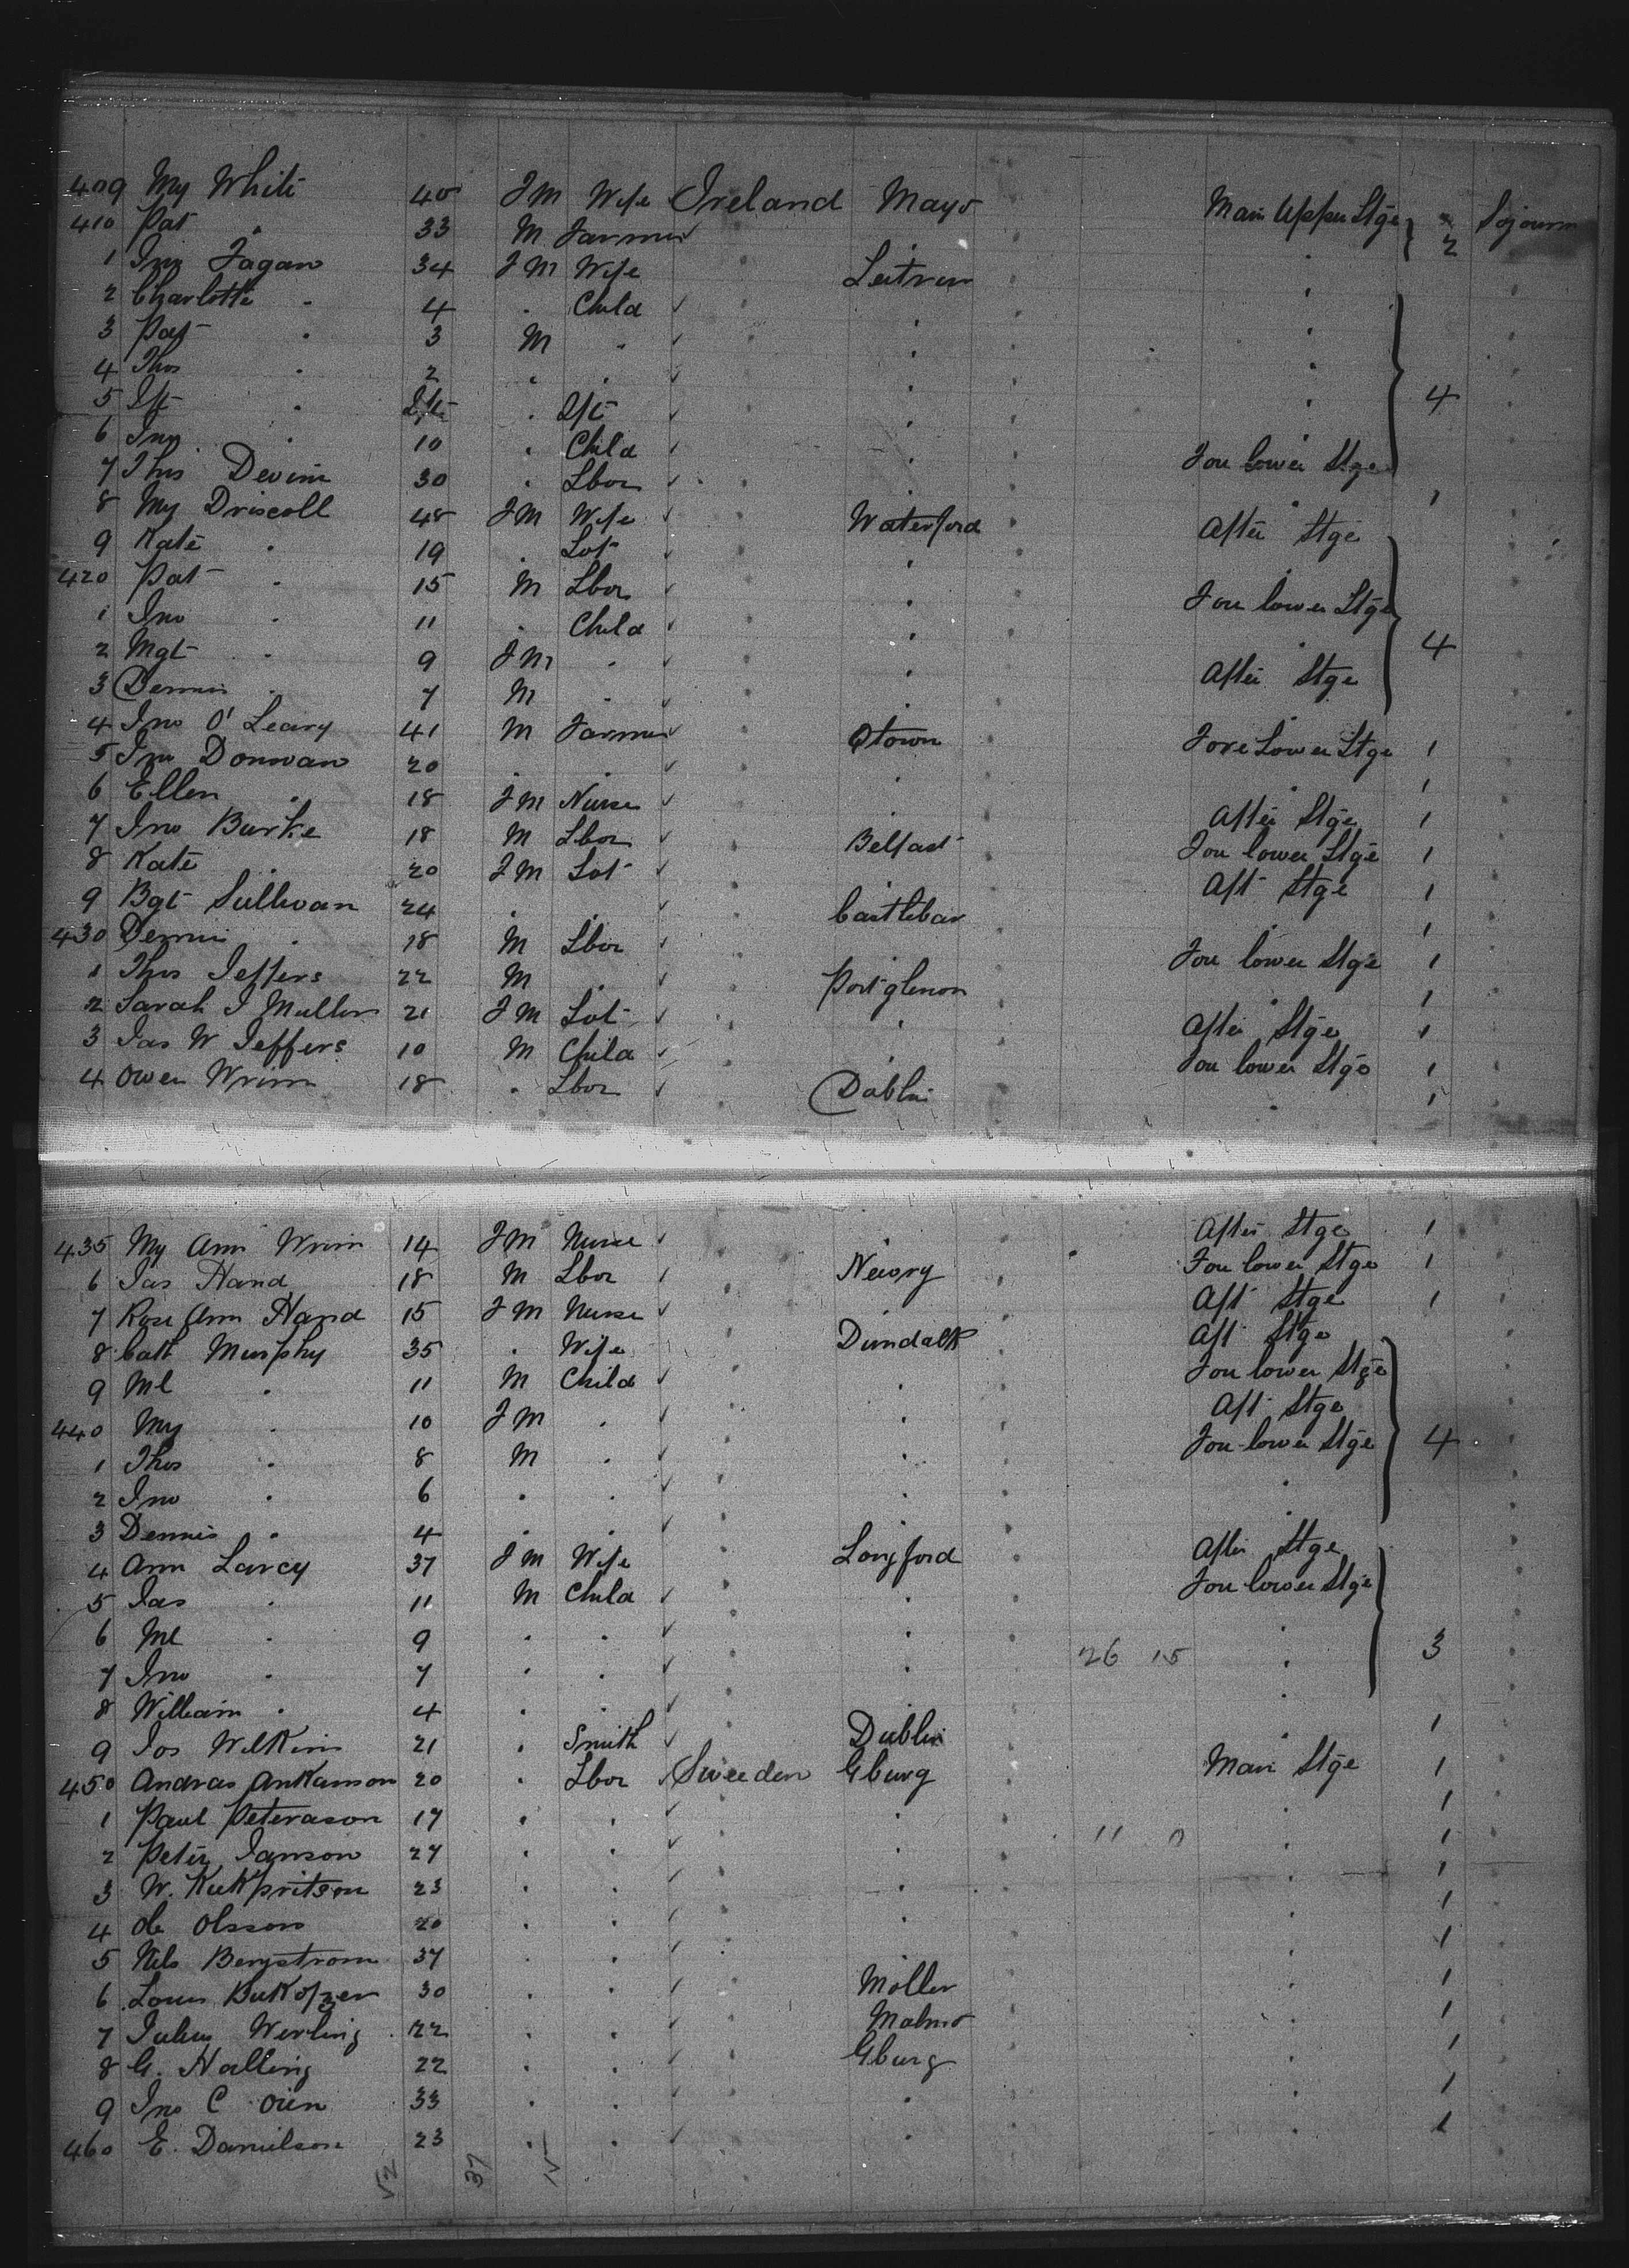 409 My White 40 FM Wife Ireland Mayo Main Upper Stge 2 Sojourn
410 Pat " 33 M Farmer "
1 Jno Fagan 34 FM Wife Leitrim "
2 Charlotte " 4 " Child "
3 Pat " 3 M " "
4 Thos " 2 " " "
5 Ift " Ift " Ift " 4
6 Jno " 10 " Child "
7 Thos Devine 30 " Lbor " Fou lower Stge 1
8 My Driscoll 48 FM Wife Waterford After Stge
9 Kate " 19 " Sot " "
420 Pat " 15 M Lbor " Fou lower Stge
1 Jno " 11 " Child " " 4
2 Mgt " 9 FM " " After Stge
3 Dennis " 7 M " " "
4 Jno O'Leary 41 M Farmer Qtown Fore Lower Stge 1
5 Jno Donovan 20 " " " " 1
6 Ellen " 18 FM Nurse " After Stge 1
7 Jno Burke 18 M Lbor Belfast Fou lower Stge 1
8 Kate " 20 FM Sot " Aft Stge 1
9 Bgt Sullivan 24 " " Castlebar " 1
430 Dennis " 18 M Lbor Fou lower Stge 1
1 Thos Jeffers 22 M " Portglenon " 1
2 Sarah J Muller 21 FM Sot " After Stge 1
3 Jas W Jeffers 10 M Child " Fou lower Stge 1
4 Owen Wrim 18 " Lbor Dublin " 1
435 My Ann Wrim 14 FM Nurse " After Stge 1
6 Jas Hand 18 M Lbor Newry Fou lower Stge 1
7 Rose Ann Hand 15 FM Nurse Aft Stge 1
8 Cath Murphy 35 " Wife Dundalk Aft Stge
9 Ml " 11 M Child " Fou lower Stge
440 My " 10 FM " " Aft Stge
1 Thos " 8 M " " Fou lower Stge 4
2 Jno " 6 " " " "
3 Dennis " 4 " " " "
4 Ann Larcy 37 FM Wife Longford After Stge
5 Jas " 11 M Child " Fou lower Stge
6 Ml " 9 " " " 26 15 " 3
7 Jno " 7 " " " "
8 William " 4 " " "
9 Jos Wilkin 21 " Smith Dublin " 1
450 Andras Ankamson 20 " Lbor Sweeden Gburg Main Stge 1
1 Paul Peterason 17 " " " " 1
2 Peter Janson 27 " " " 11 0 " 1
3 W. Kukpritson 23 " " " 1
4 Ole Olsson 20 " " " " 1
5 Nils Bergstrom 37 " " " 1
6 Louis 30 " " Moller " 1
7 Julius Werling 22 " " Malmo " 1
8 G. Halling 22 " " Gburg " 1
9 Jno C Oien 33 " " " " 1
460 E. Danielson 23 " " " " 1
52 37 15